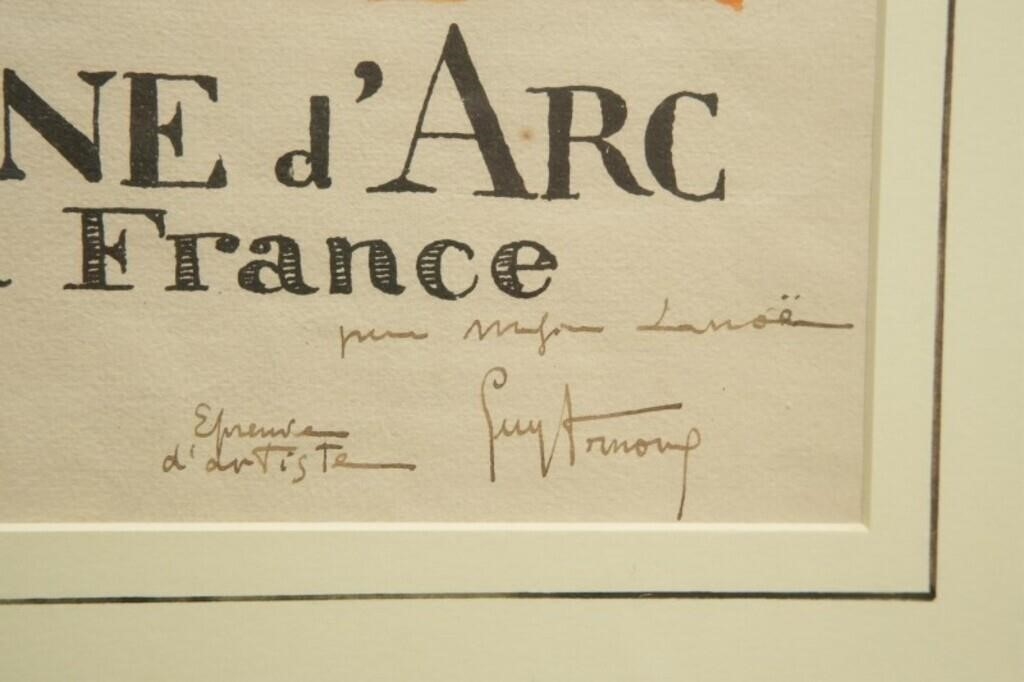 NE d'ARC
France
pour Lannoë
Epreuve
d'artiste
Guy Arnoux